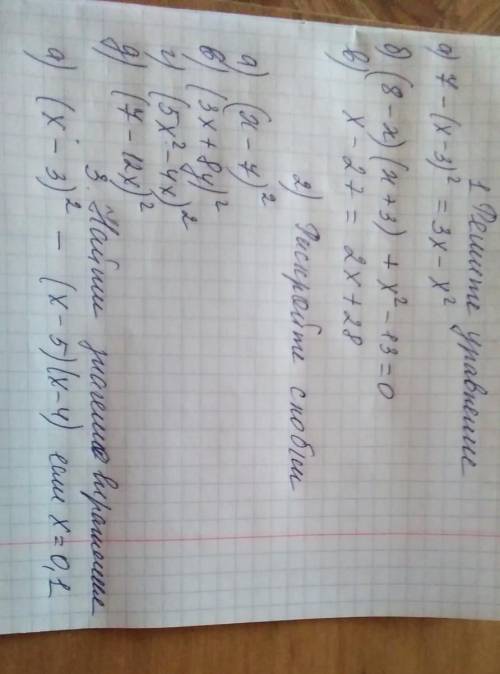 1 Решите уравнение
а) 7 - (x-3)² = 3x - x²
б) (8 - x)(x+3) + x² - 13 = 0
в) x - 27 = 2x + 28
2) Раскройте скобки
а) (x - 7)²
в) (3x + 8y)²
г) (5x² - 4x)²
д) (7 - 12x)²
3. Найти значение выражения
а) (x - 3)² - (x - 5)(x - 4) если x = 0,1